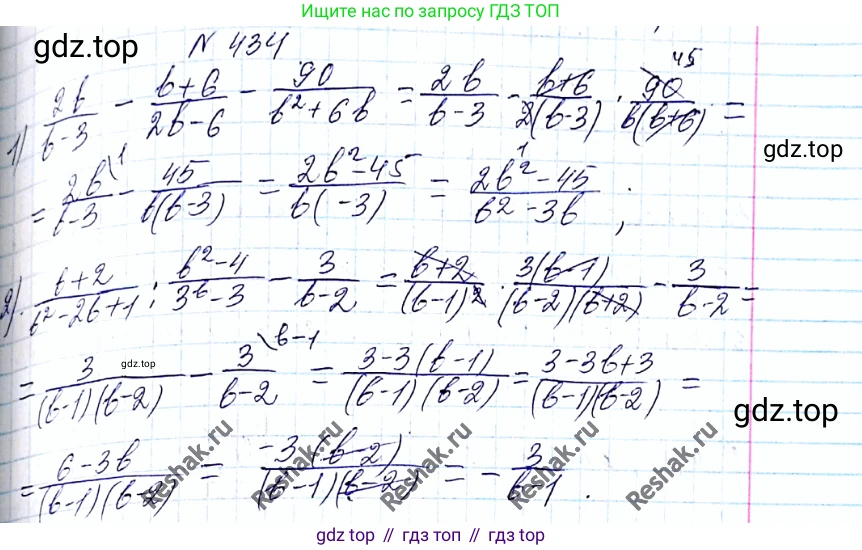 Ищите нас по запросу ГДЗ ТОП
gdz.top
N 434
1) 2b/(b-3) - (b+6)/(2b-6) - 90/(b²+6b) = 2b/(b-3) - (b+6)/(2(b-3)) · 90/(b(b+6)) = 45
gdz.top
= 2b/(b-3) \1 - 45/(b(b-3)) = (2b²-45)/(b( -3)) = (2b²-45)/(b²-3b) ;
2) (b+2)/(b²-2b+1) : (b²-4)/(3b-3) - 3/(b-2) = (b+2)/(b-1)² · 3(b-1)/((b-2)(b+2)) - 3/(b-2) =
gdz.top
= 3/((b-1)(b-2)) - 3/(b-2) \b-1 = (3-3(b-1))/((b-1)(b-2)) = (3-3b+3)/((b-1)(b-2)) =
gdz.top
= (6-3b)/((b-1)(b-2)) = -3(b-2)/((b-1)(b-2)) = - 3/(b-1) .
Reshak.ru Reshak.ru Reshak.ru Reshak.ru
gdz.top // гдз топ // gdz.top